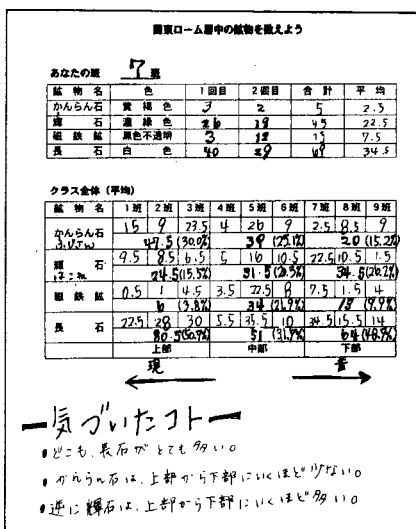 関東ローム層中の鉱物を数えよう
あなたの班 7 班
鉱物名 色 1回目 2回目 合計 平均
かんらん石 黄褐色 3 2 5 2.5
輝石 濃緑色 26 19 45 22.5
磁鉄鉱 黒色不透明 3 12 15 7.5
長石 白色 40 29 69 34.5
クラス全体（平均）
鉱物名 1班 2班 3班 4班 5班 6班 7班 8班 9班
かんらん石 15 9 23.5 4 26 9 2.5 8.5 9
47.5(30.0%) 39(25.1%) 20(15.2%)
輝石 9.5 8.5 6.5 5 16 10.5 22.5 10.5 1.5
はこね 24.5(15.5%) 31.5(20.3%) 34.5(26.2%)
磁鉄鉱 0.5 1 4.5 3.5 22.5 8 7.5 1.5 4
6(3.8%) 34(21.9%) 13(9.9%)
長石 22.5 28 30 5.5 35.5 10 34.5 15.5 14
80.5(50.9%) 51(31.9%) 64(48.9%)
上部 中部 下部
現 昔
ー気づいたコトー
・どこも、長石がとても多い。
・かんらん石は、上部から下部にいくほど少ない。
・逆に輝石は、上部から下部にいくほど多い。